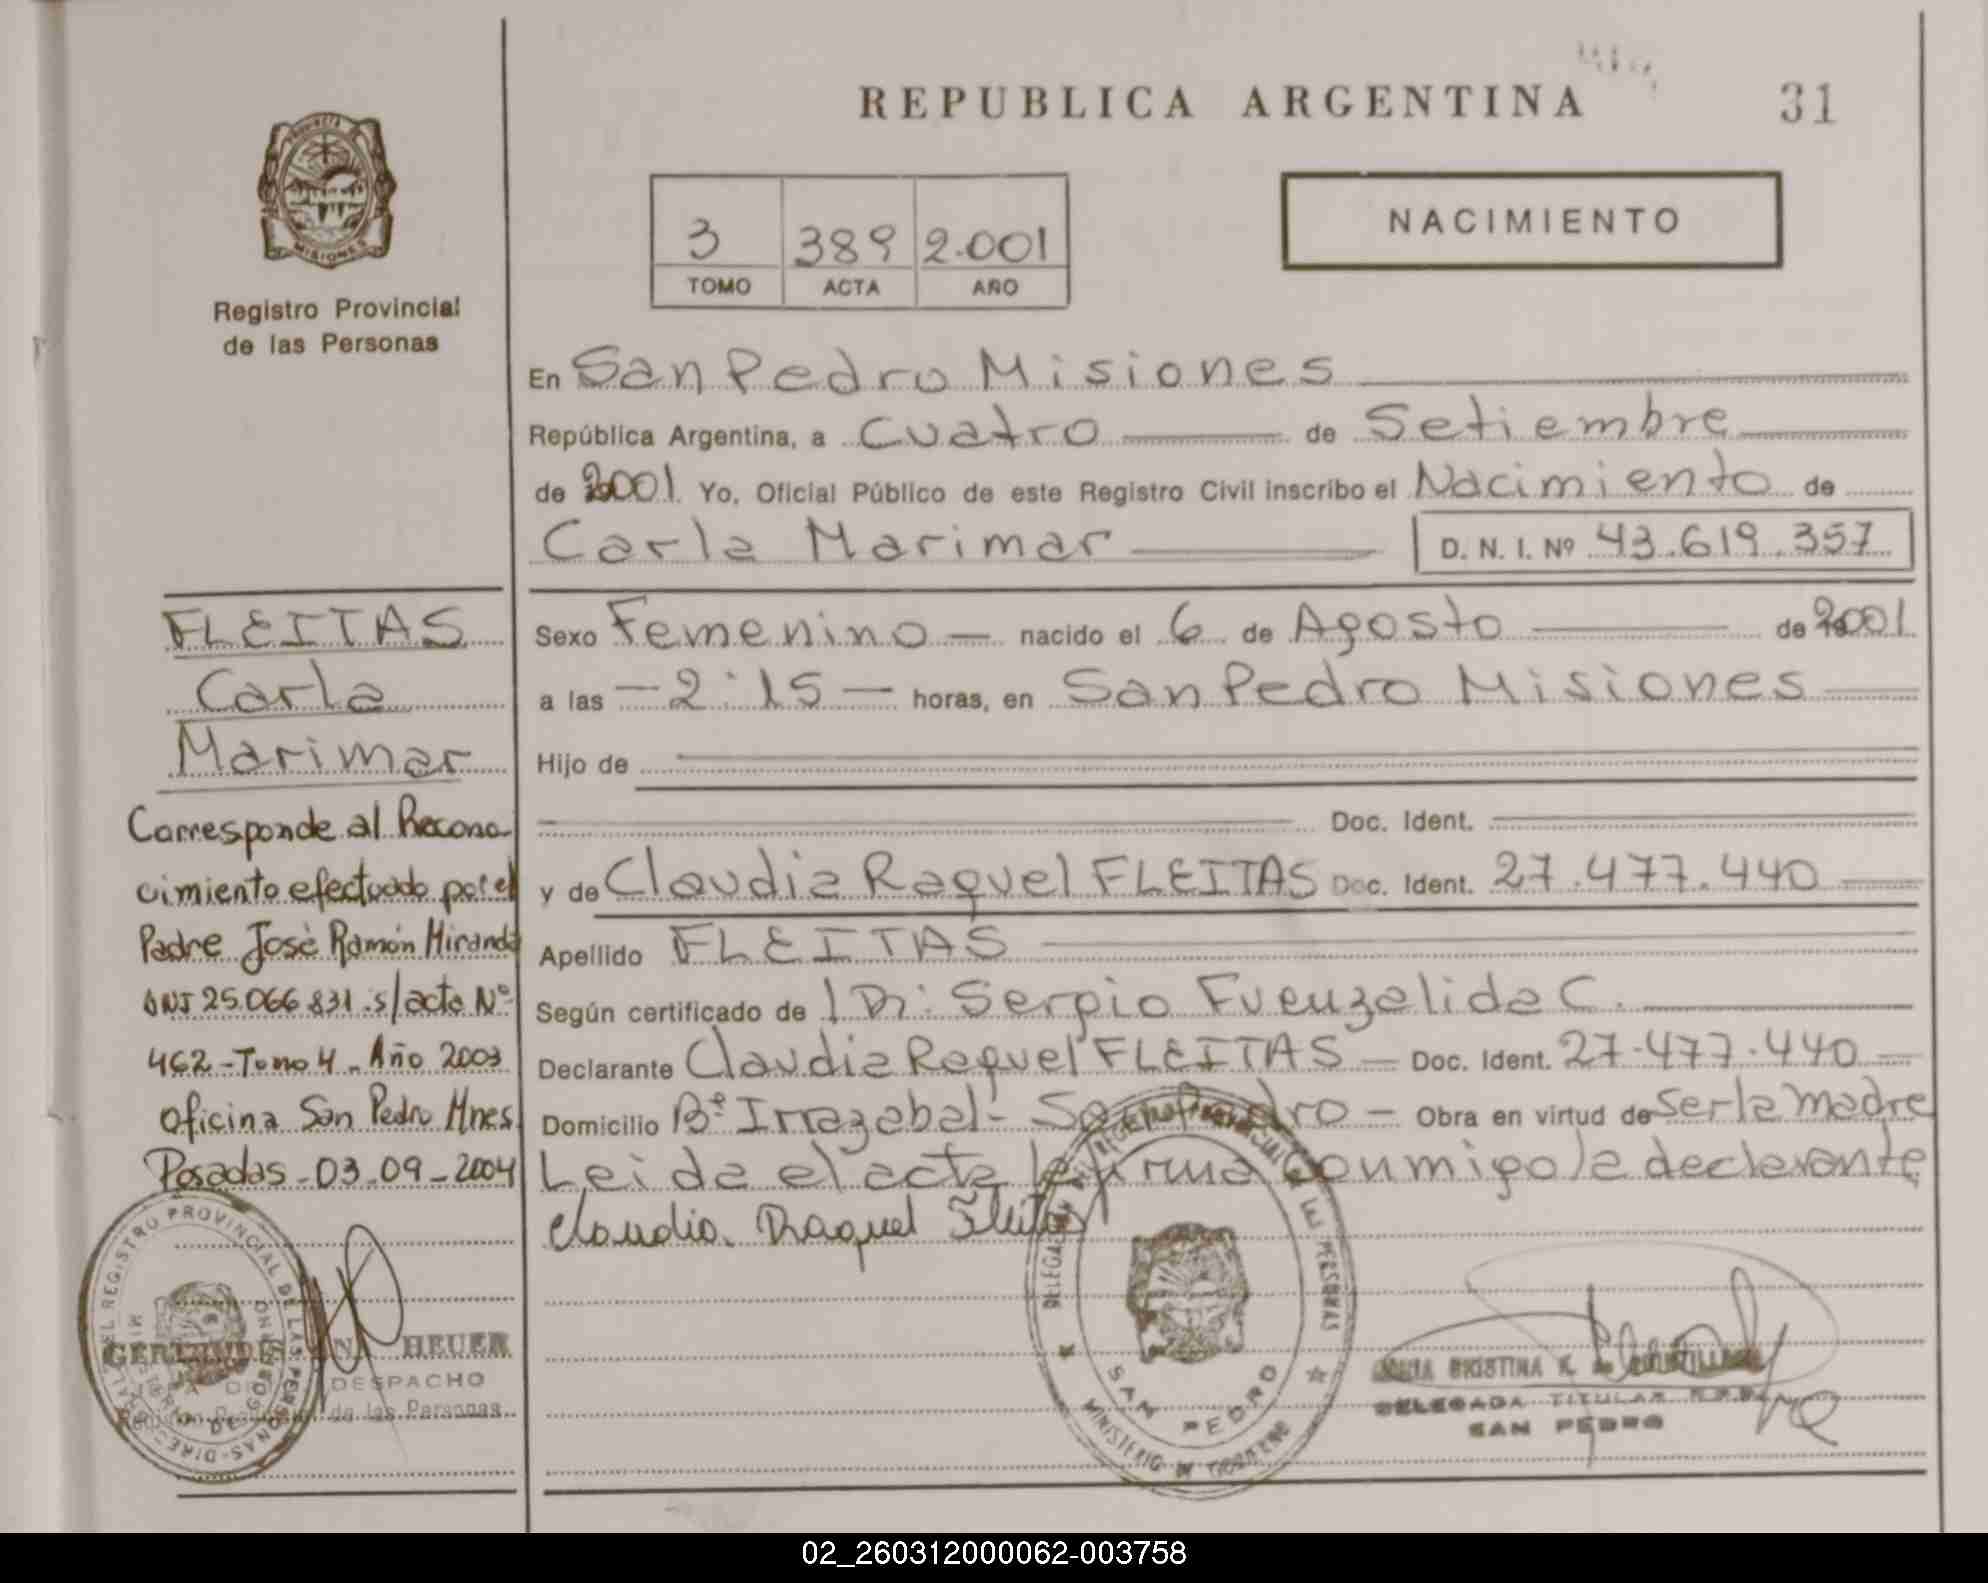 REPUBLICA ARGENTINA
31
PROVINCIA DE
MISIONES
Registro Provincial
de las Personas
3 389 2.001
TOMO ACTA AÑO
NACIMIENTO
En San Pedro Misiones
República Argentina, a Cuatro de Setiembre
de 2001 Yo, Oficial Público de este Registro Civil inscribo el Nacimiento de
Carla Marimar D. N. I. Nº 43.619.357
Sexo Femenino nacido el 6 de Agosto de 2001
a las 2:15 horas, en San Pedro Misiones
Hijo de
Doc. Ident.
y de Claudia Raquel FLEITAS Doc. Ident. 27.477.440
Apellido FLEITAS
Según certificado de Dr: Sergio Fuenzalida C.
Declarante Claudia Raquel FLEITAS Doc. Ident. 27.477.440
Domicilio Bº Irrazabal - San Pedro Obra en virtud de ser la madre
Leida el acta la firma conmigo la declarante
Claudia Raquel Fleitas
FLEITAS
Carla
Marimar
Corresponde al Recono
cimiento efectuado por el
Padre José Ramón Miranda
DNI 25.066.831 s/acta Nº
462-Tomo 4-Año 2003
Oficina San Pedro Mnes.
Posadas-03-09-2004
REGISTRO PROVINCIAL DE LAS PERSONAS
HEUER
DESPACHO
de las Personas
REGISTRO PROVINCIAL DE LAS PERSONAS
SAN PEDRO
MINISTERIO DE GOBIERNO
CRISTINA
DELEGADA TITULAR R.P.P.
SAN PEDRO
02_260312000062-003758